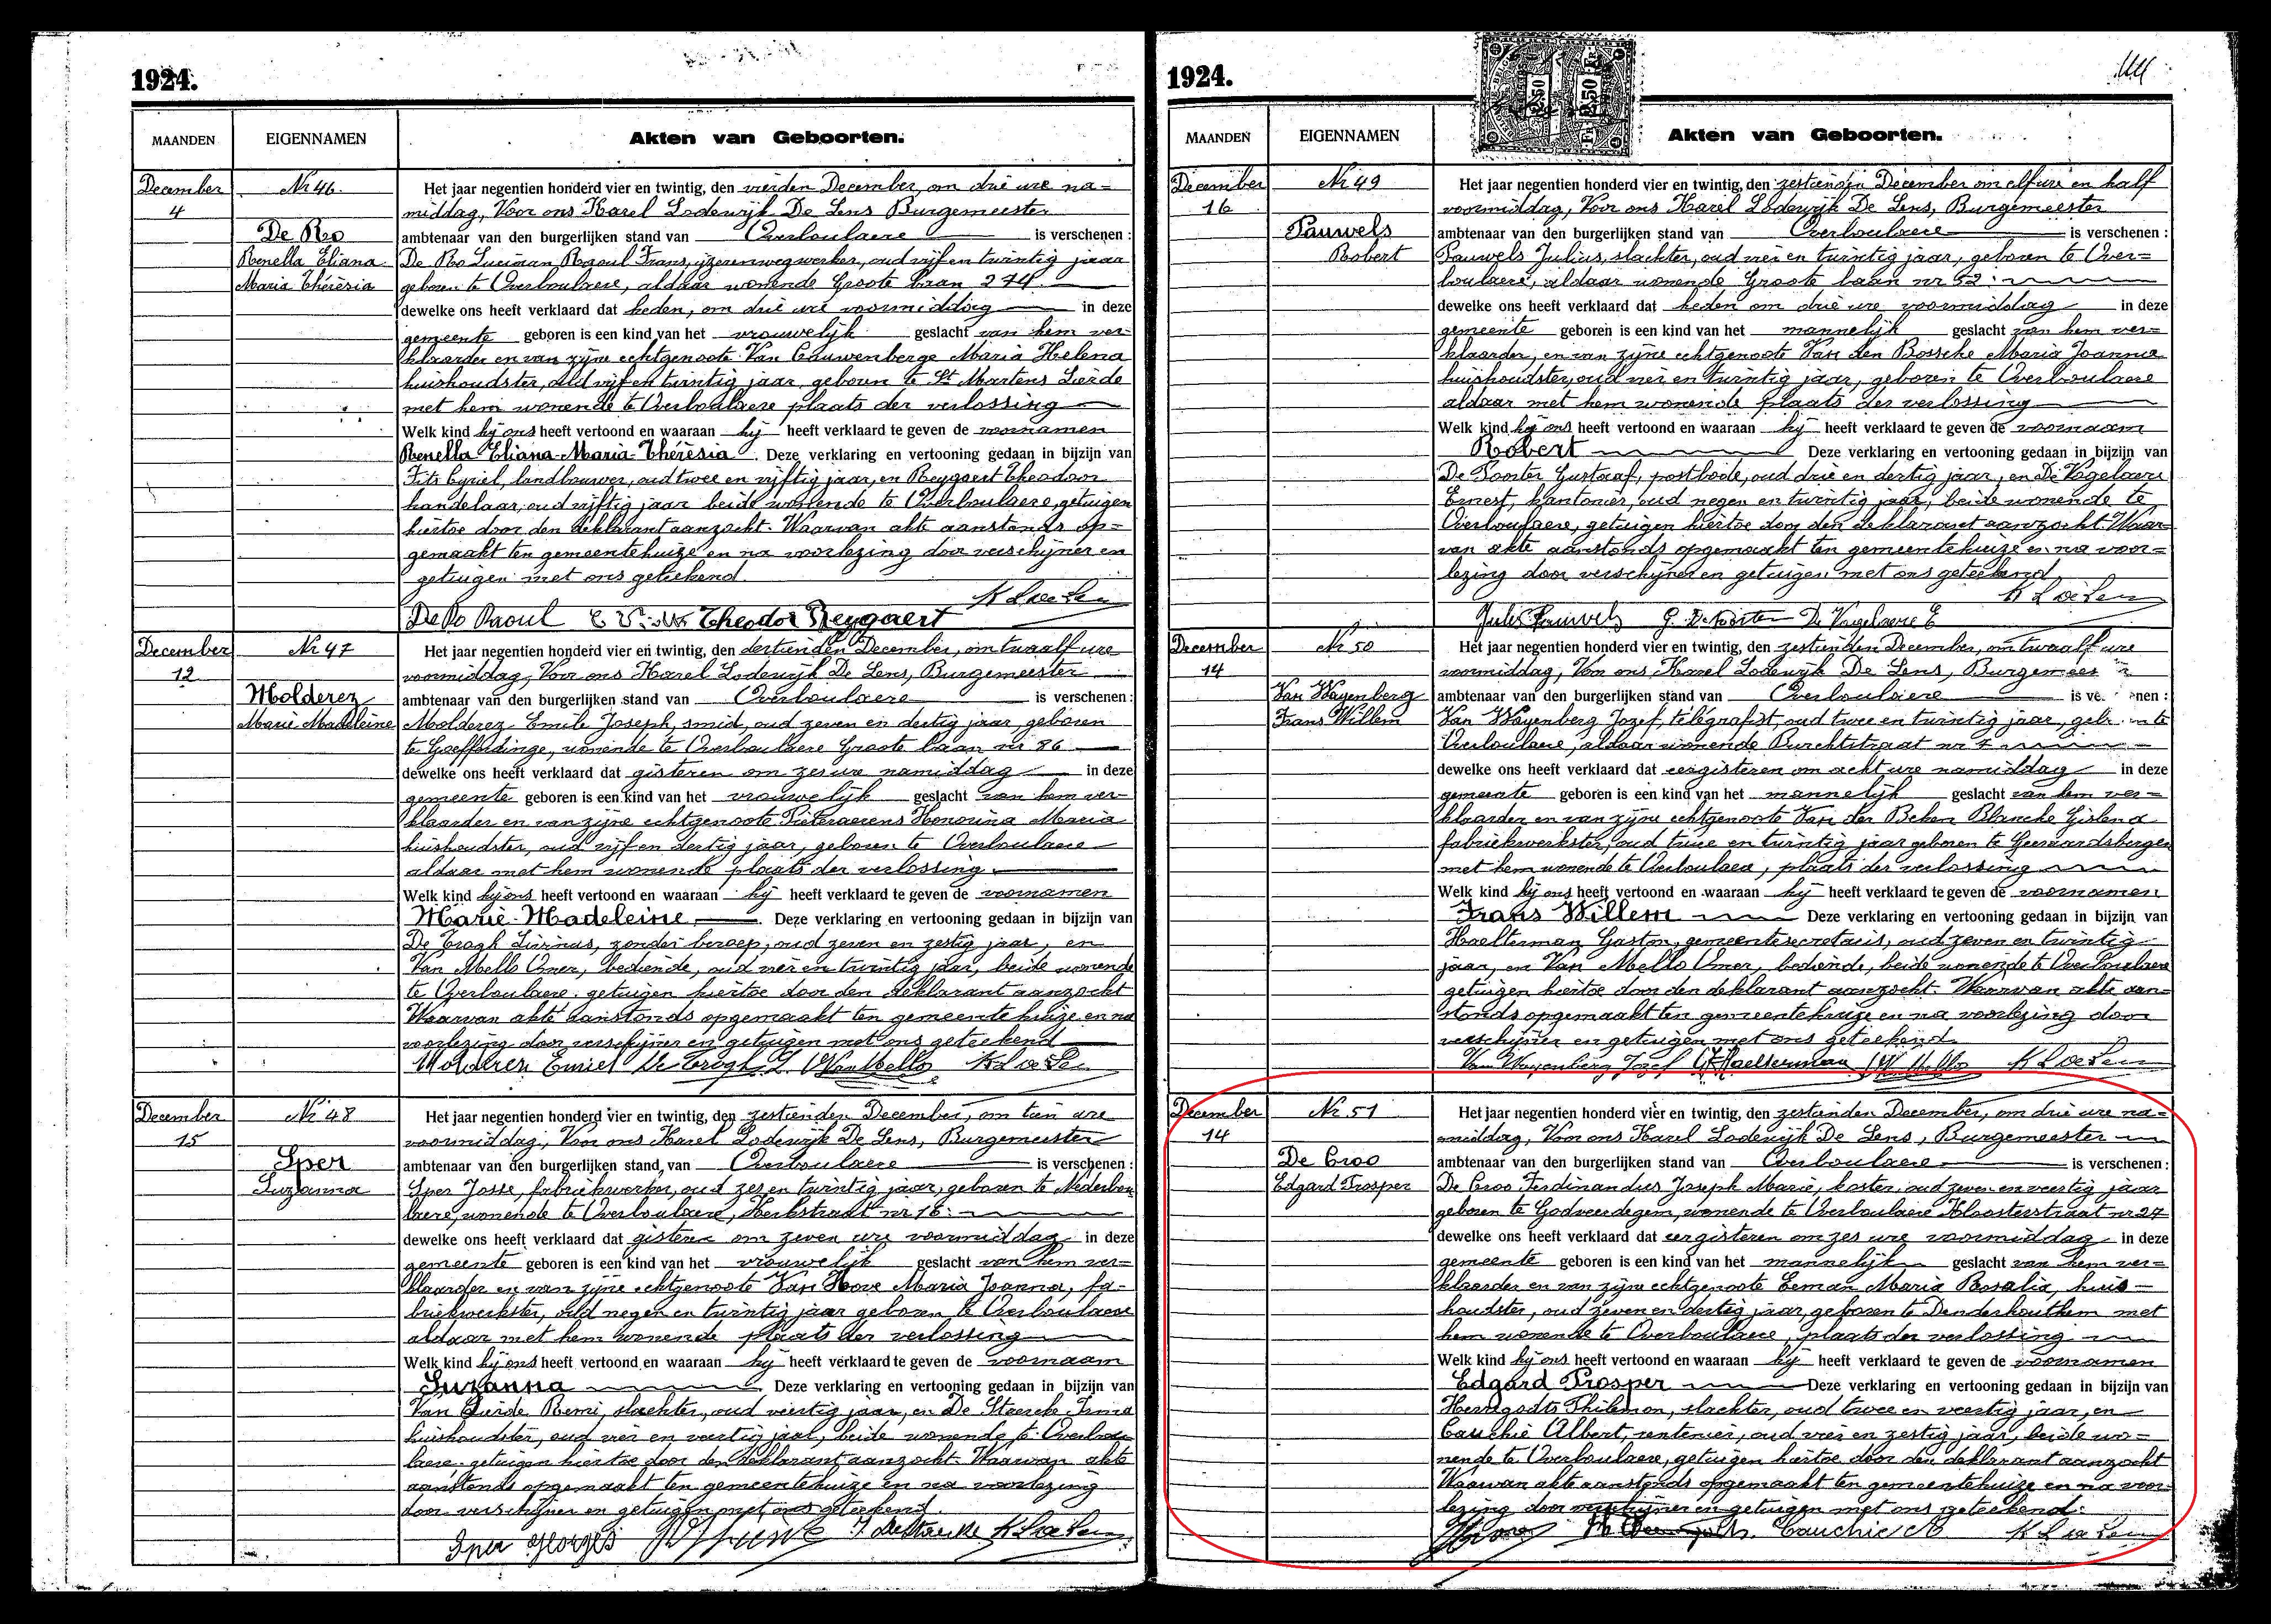 1924.
MAANDEN EIGENNAMEN Akten van Geboorten.
December Nr 46. Het jaar negentien honderd vier en twintig, den vierden December, om drie ure na=
4 middag, Voor ons Karel Lodewijk De Lens Burgemeester
De Ro ambtenaar van den burgerlijken stand van Overboulaere is verschenen :
Renella Eliana De Ro Luciman Raoul Frans, ijzerenwegwerker, oud vijf en twintig jaar
Maria Thérèsia geboren te Overboulaere, aldaar wonende Groote baan 274.
dewelke ons heeft verklaard dat heden, om drie ure voormiddag in deze
gemeente geboren is een kind van het vrouwelijk geslacht van hem ver-
klaarder en van zijne echtgenoote Van Cauwenberge Maria Helena
huishoudster, oud vijf en twintig jaar geboren te St Martens Lierde
met hem wonende te Overboulaere plaats der verlossing
Welk kind hij ons heeft vertoond en waaraan hij heeft verklaard te geven de voornamen
Renella Eliana-Maria-Thérèsia. Deze verklaring en vertooning gedaan in bijzijn van
Cyriel, landbouwer, oud twee en vijftig jaar, en Reygaert Theodoor
handelaar, oud vijftig jaar beide wonende te Overboulaere, getuigen
hiertoe door den deklarant aanzocht. Waarvan akte aanstonds op=
gemaakt ten gemeentehuize en na voorlezing door verschijner en
getuigen met ons geteekend.
K L De Lens
De Ro Raoul Theodor Reygaert
December Nr 47 Het jaar negentien honderd vier en twintig, den dertienden December, om twaalf ure
12 voormiddag, Voor ons Karel Lodewijk De Lens, Burgemeester
Molderez ambtenaar van den burgerlijken stand van Overboulaere is verschenen :
Marie Madeleine Molderez Emile Joseph, smid, oud zeven en dertig jaar, geboren
te Goefferdinge, wonende te Overboulaere Groote baan nr 86
dewelke ons heeft verklaard dat gisteren om zes ure namiddag in deze
gemeente geboren is een kind van het vrouwelijk geslacht van hem ver-
klaarder en van zijne echtgenoote Pieteraerens Honorina Maria
huishoudster, oud vijf en dertig jaar, geboren te Overboulaere
aldaar met hem wonende plaats der verlossing.
Welk kind hij ons heeft vertoond en waaraan hij heeft verklaard te geven de voornamen
Marie-Madeleine. Deze verklaring en vertooning gedaan in bijzijn van
De Trogh Livinus, zonder beroep, oud zeven en zestig jaar, en
Van Mello Omer, bediende, oud vier en twintig jaar, beide wonende
te Overboulaere, getuigen hiertoe door den deklarant aanzocht
Waarvan akte aanstonds opgemaakt ten gemeente huize en na
voorlezing door verschijner en getuigen met ons geteekend
Molderez Emiel De Trogh L. O Van Mello K L De Lens
December Nr 48 Het jaar negentien honderd vier en twintig, den zestienden December, om tien ure
15 voormiddag, Voor ons Karel Lodewijk De Lens, Burgemeester
Sper ambtenaar van den burgerlijken stand van Overboulaere is verschenen :
Suzanna Sper Josse, fabriekwerker, oud zes en twintig jaar, geboren te Nederbou
laere, wonende te Overboulaere, Kerkstraat nr 18.
dewelke ons heeft verklaard dat gisteren om zeven ure voormiddag in deze
gemeente geboren is een kind van het vrouwelijk geslacht van hem ver=
klaarder en van zijne echtgenoote Van Hove Maria Joanna, fa-
briekwerkster, oud negen en twintig jaar geboren te Overboulaere
aldaar met hem wonende plaats der verlossing
Welk kind hij ons heeft vertoond en waaraan hij heeft verklaard te geven de voornaam
Suzanna Deze verklaring en vertooning gedaan in bijzijn van
Van Lierde Remi, slachter, oud veertig jaar, en De Staercke Irma
huishoudster, oud vier en veertig jaar, beide wonende te Overbou
laere, getuigen hiertoe door den deklarant aanzocht. Waarvan akte
aanstonds opgemaakt ten gemeentehuize en na voorlezing
door verschijner en getuigen met ons geteekend.
Sper Georges K L De Lens
1924.
MAANDEN EIGENNAMEN Akten van Geboorten.
December Nr 49 Het jaar negentien honderd vier en twintig, den zestienden December om elf ure en half
16 voormiddag, Voor ons Karel Lodewijk De Lens, Burgemeester
Pauwels ambtenaar van den burgerlijken stand van Overboulaere is verschenen :
Robert Pauwels Julius, slachter, oud vier en twintig jaar, geboren te Over=
boulaere, aldaar wonende Groote baan nr 52.
dewelke ons heeft verklaard dat heden om drie ure voormiddag in deze
gemeente geboren is een kind van het mannelijk geslacht van hem ver=
klaarder, en van zijne echtgenoote Van den Bossche Maria Joanna
huishoudster, oud vier en twintig jaar, geboren te Overboulaere
aldaar met hem wonende plaats der verlossing
Welk kind hij ons heeft vertoond en waaraan hij heeft verklaard te geven de voornaam
Robert Deze verklaring en vertooning gedaan in bijzijn van
De Pooter Gustaaf, postbode, oud drie en dertig jaar, en De Vogelaere
Ernest, kantonier, oud negen en twintig jaar, beide wonende te
Overboulaere, getuigen hiertoe door den deklarant aanzocht. Waar=
van akte aanstonds opgemaakt ten gemeentehuize en na voor=
lezing door verschijner en getuigen met ons geteekend
K L De Lens
Jules Pauwels De Vogelaere E
December Nr 50 Het jaar negentien honderd vier en twintig, den zestienden December, om twaalf ure
14 voormiddag, Voor ons Karel Lodewijk De Lens, Burgemees
Van Wayenberg ambtenaar van den burgerlijken stand van Overboulaere is ve nen :
Frans Willem Van Wayenberg Jozef, telegrafist, oud twee en twintig jaar, geb te
Overboulaere, aldaar wonende Burchtstraat nr 7
dewelke ons heeft verklaard dat eergisteren om acht ure namiddag in deze
gemeente geboren is een kind van het mannelijk geslacht van hem ver=
klaarder en van zijne echtgenoote Van der Beken Blanche Gislena
fabriekwerkster, oud twee en twintig jaar geboren te Geeraardsbergen
met hem wonende te Overboulaere, plaats der verlossing
Welk kind hij ons heeft vertoond en waaraan hij heeft verklaard te geven de voornamen
Frans Willem Deze verklaring en vertooning gedaan in bijzijn van
Haelterman Gaston, gemeentesecretaris, oud zeven en twintig
jaar, en Van Mello Omer, bediende, beide wonende te Overboulaere
getuigen hiertoe door den deklarant aanzocht. Waarvan akte aan=
stonds opgemaakt ten gemeentehuize en na voorlezing door
verschijner en getuigen met ons geteekend.
Van Wayenberg Jozef G Haelterman O Van Mello K L De Lens
December Nr 51 Het jaar negentien honderd vier en twintig, den zestienden December, om drie ure na=
14 middag, Voor ons Karel Lodewijk De Lens, Burgemeester
De Croo ambtenaar van den burgerlijken stand van Overboulaere is verschenen :
Edgard Prosper De Croo Ferdinandus Joseph Marie, koster, oud zeven en veertig jaar
geboren te Godveerdegem, wonende te Overboulaere Kloosterstraat nr 27
dewelke ons heeft verklaard dat eergisteren om zes ure voormiddag in deze
gemeente geboren is een kind van het mannelijk geslacht van hem ver=
klaarder en van zijne echtgenoote Eeman Maria Rosalia, huis=
houdster, oud zeven en dertig jaar, geboren te Denderhoutem met
hem wonende te Overboulaere, plaats der verlossing
Welk kind hij ons heeft vertoond en waaraan hij heeft verklaard te geven de voornamen
Edgard Prosper Deze verklaring en vertooning gedaan in bijzijn van
Herregodts Philemon, slachter, oud twee en veertig jaar, en
Cauchie Albert, rentenier, oud vier en zestig jaar, beide wo=
nende te Overboulaere, getuigen hiertoe door den deklarant aanzocht
Waarvan akte aanstonds opgemaakt ten gemeentehuize en na voor=
lezing door verschijner en getuigen met ons geteekend.
Cauchie A K L De Lens